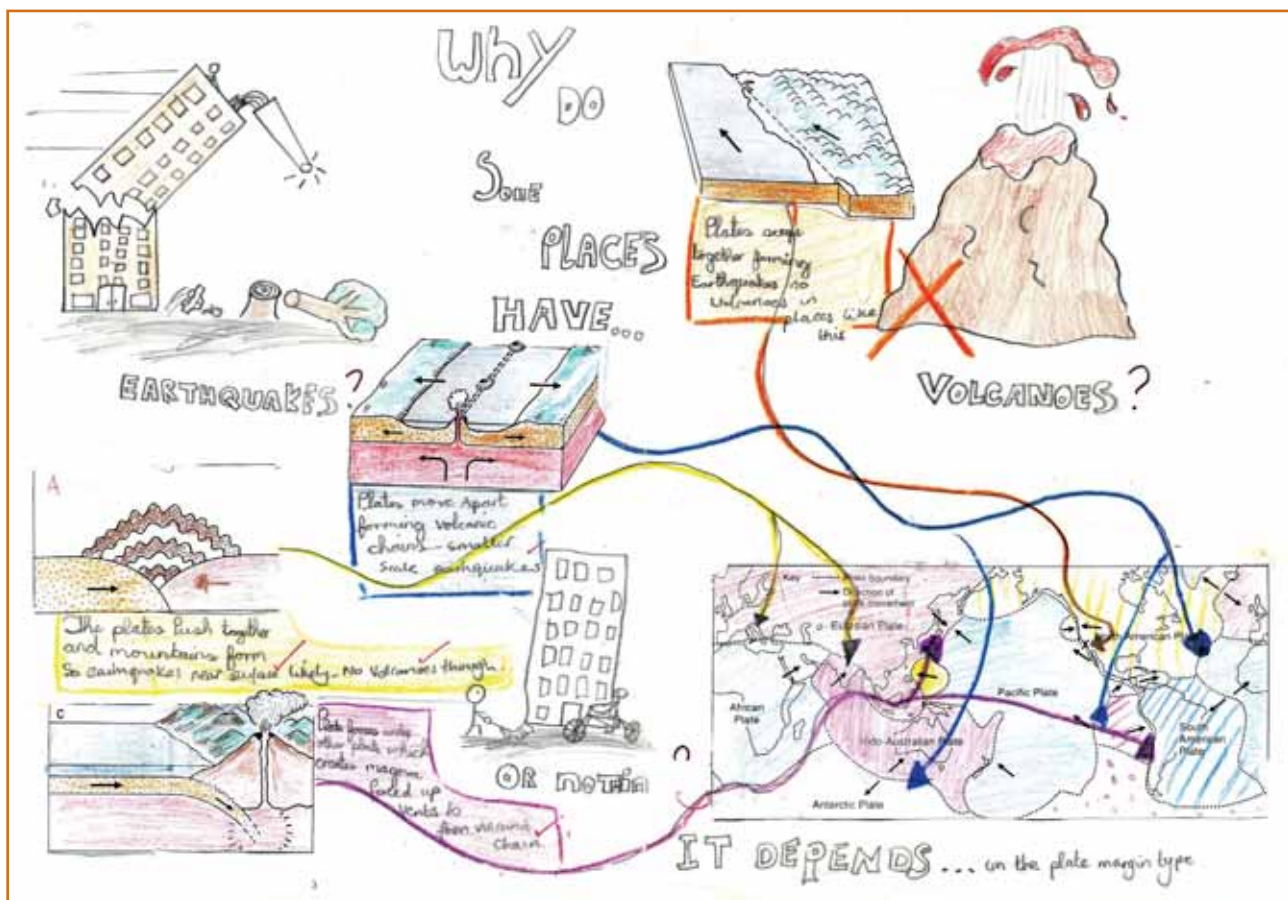 Why
DO
Some
PLACES
HAVE...
EARTHQUAKES?
VOLCANOES?
Plates
together forming
Earthquakes no
Volcanoes in
places like
this
Plates move apart
forming volcanic
chains - smaller
scale earthquakes
A
The plates push together
and mountains form
So earthquakes near surface likely. No Volcanoes though.
C
Plate forces under
other plate which
creates magma
forced up
vents to
form volcanic
chain
OR nothin
?
Key
boundary
Direction of
plate movement
Eurasian Plate
American Pl
African
Plate
Pacific Plate
Indo-Australian Plate
South
American
Plate
Antarctic Plate
IT DEPENDS... on the plate margin type